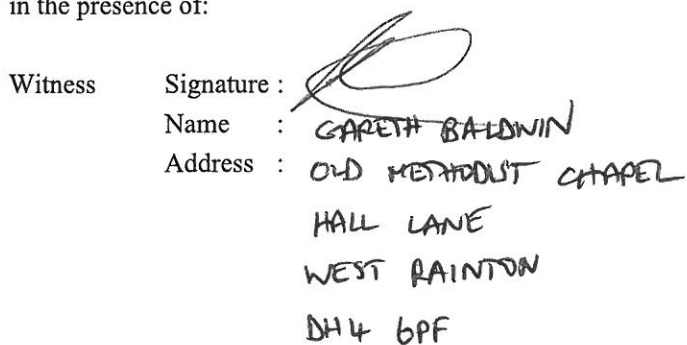 in the presence of:
Witness Signature :
Name : GARETH BALDWIN
Address : OLD METHODIST CHAPEL
HALL LANE
WEST RAINTON
DH4 6PF